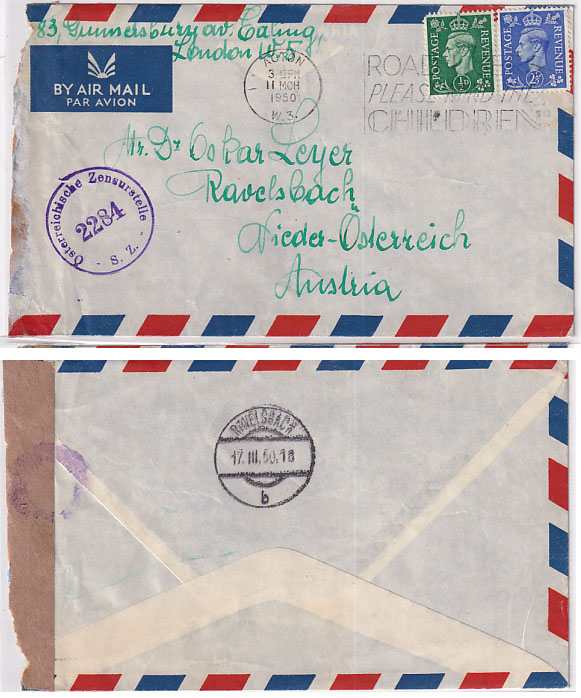 83, Gunnersbury av. Ealing,
London W.5.
BY AIR MAIL
PAR AVION
ACTON
3 15 PM
11 MCH
1950
W.3.
ROAD
PLEASE MIND THE
CHILDREN
POSTAGE
REVENUE
½D
POSTAGE
REVENUE
Mr. Dr Oskar Leyer
Ravelsbach
Nieder-Österreich
Austria
Österreichische Zensurstelle
2284
- S. Z. -
RAVELSBACH
17.III.50.18
b